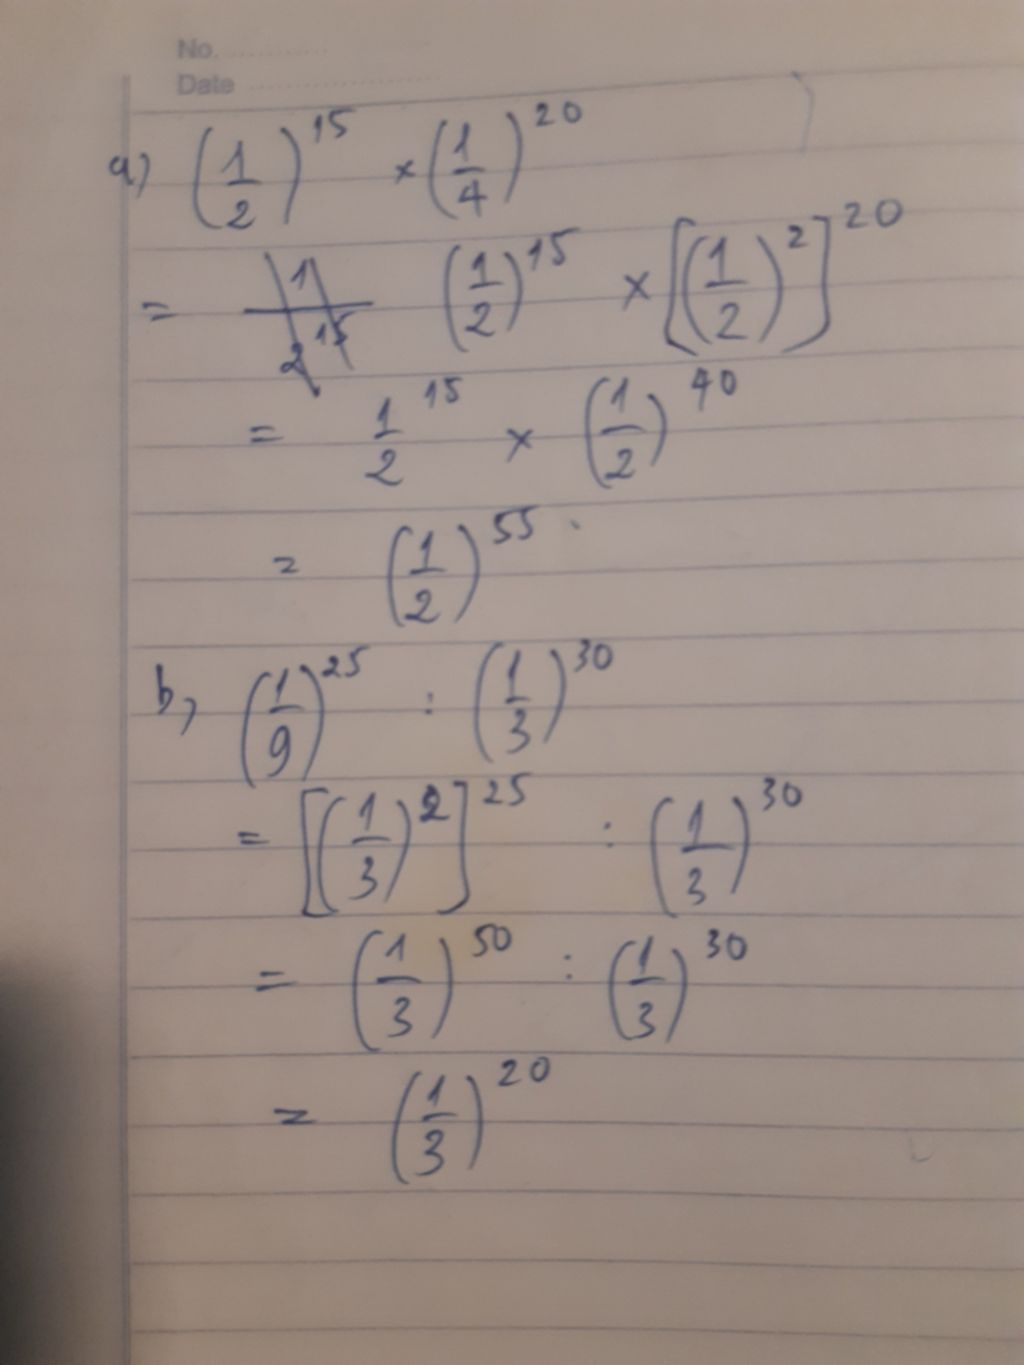 No. ..............
Date ......................
a) (1/2)^15 × (1/4)^20
= 1/2^15 (1/2)^15 × [(1/2)^2]^20
= 1/2^15 × (1/2)^40
= (1/2)^55.
b, (1/9)^25 : (1/3)^30
= [(1/3)^2]^25 : (1/3)^30
= (1/3)^50 : (1/3)^30
= (1/3)^20